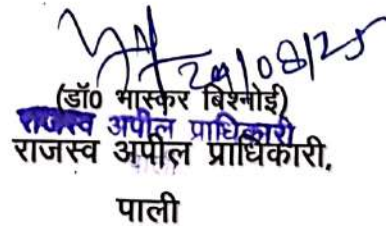 20/08/25
(डॉ0 भास्कर बिश्नोई)
राजस्व अपील प्राधिकारी
राजस्व अपील प्राधिकारी,
पाली